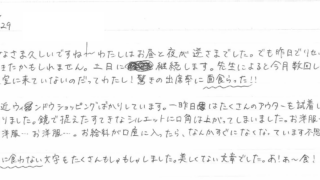 29
なさま久しいですね！わたしはお昼と夜が逆さまでした。でも昨日どりち
きたかもしれません。二日に 継続します。先生によると今月数回し
室に来ていないのだってわたし！驚きの出席率に面食らった!!
近ウィンドウショッピングばかりしています。一昨日はたくさんのアウターを試着し
りました。鏡で捉えたすてきなシルエットに口角は上がってしまいました。お洋服
お洋服…お洋服…。お給料が口座に入ったら、なんかすぐになくなっています不思
に食わない文字もたくさんもしゃもしゃしました。美しくない文章でした。あ！あ〜会！